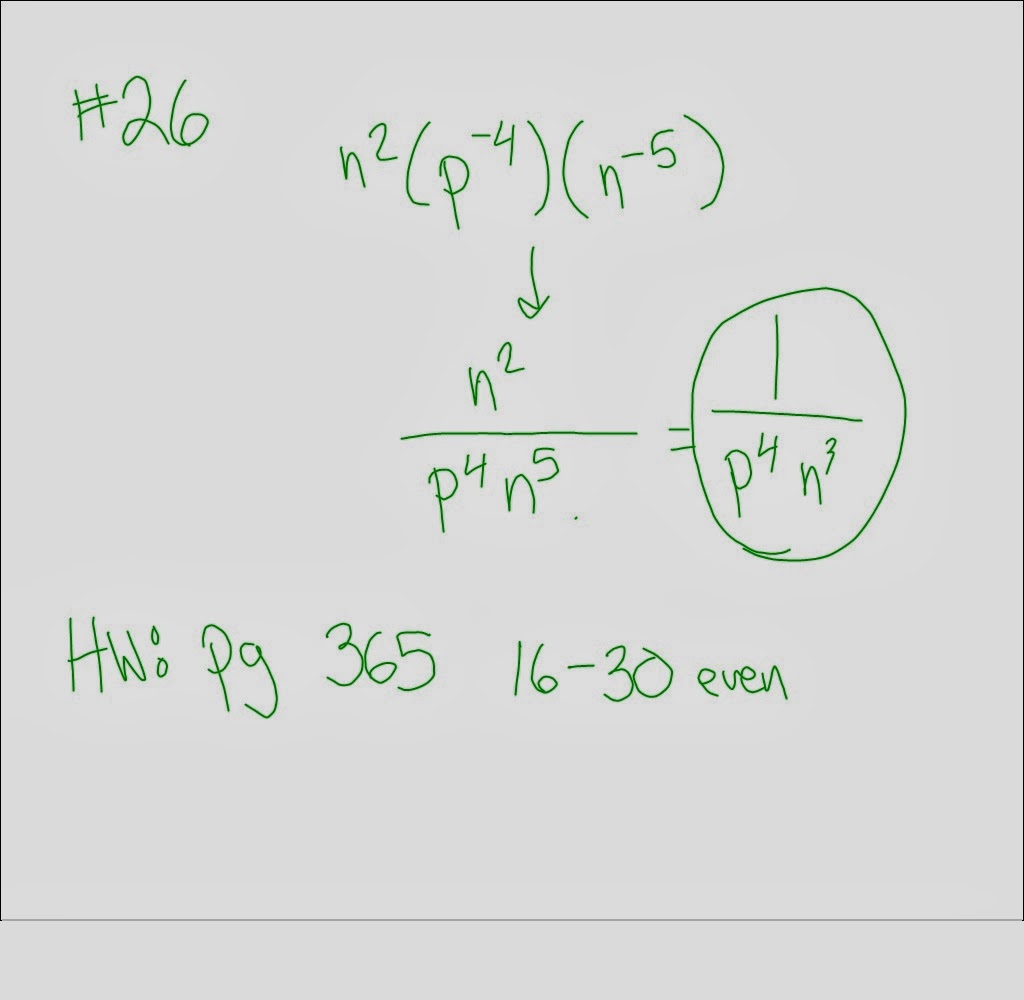 #26
n²(p⁻⁴)(n⁻⁵)
↓
n²/p⁴n⁵. = 1/p⁴n³
HW: pg 365 16-30 even